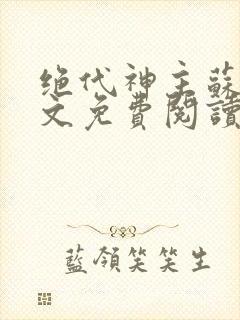 绝代神主蘇
文免費閱讀
藍領笑笑生